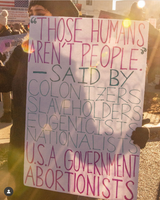 "THOSE HUMANS
AREN'T PEOPLE"
—SAID BY—
COLONIZERS
SLAVEHOLDERS
EUGENICISTS
NATIONALISTS
U.S.A. GOVERNMENT
ABORTIONISTS